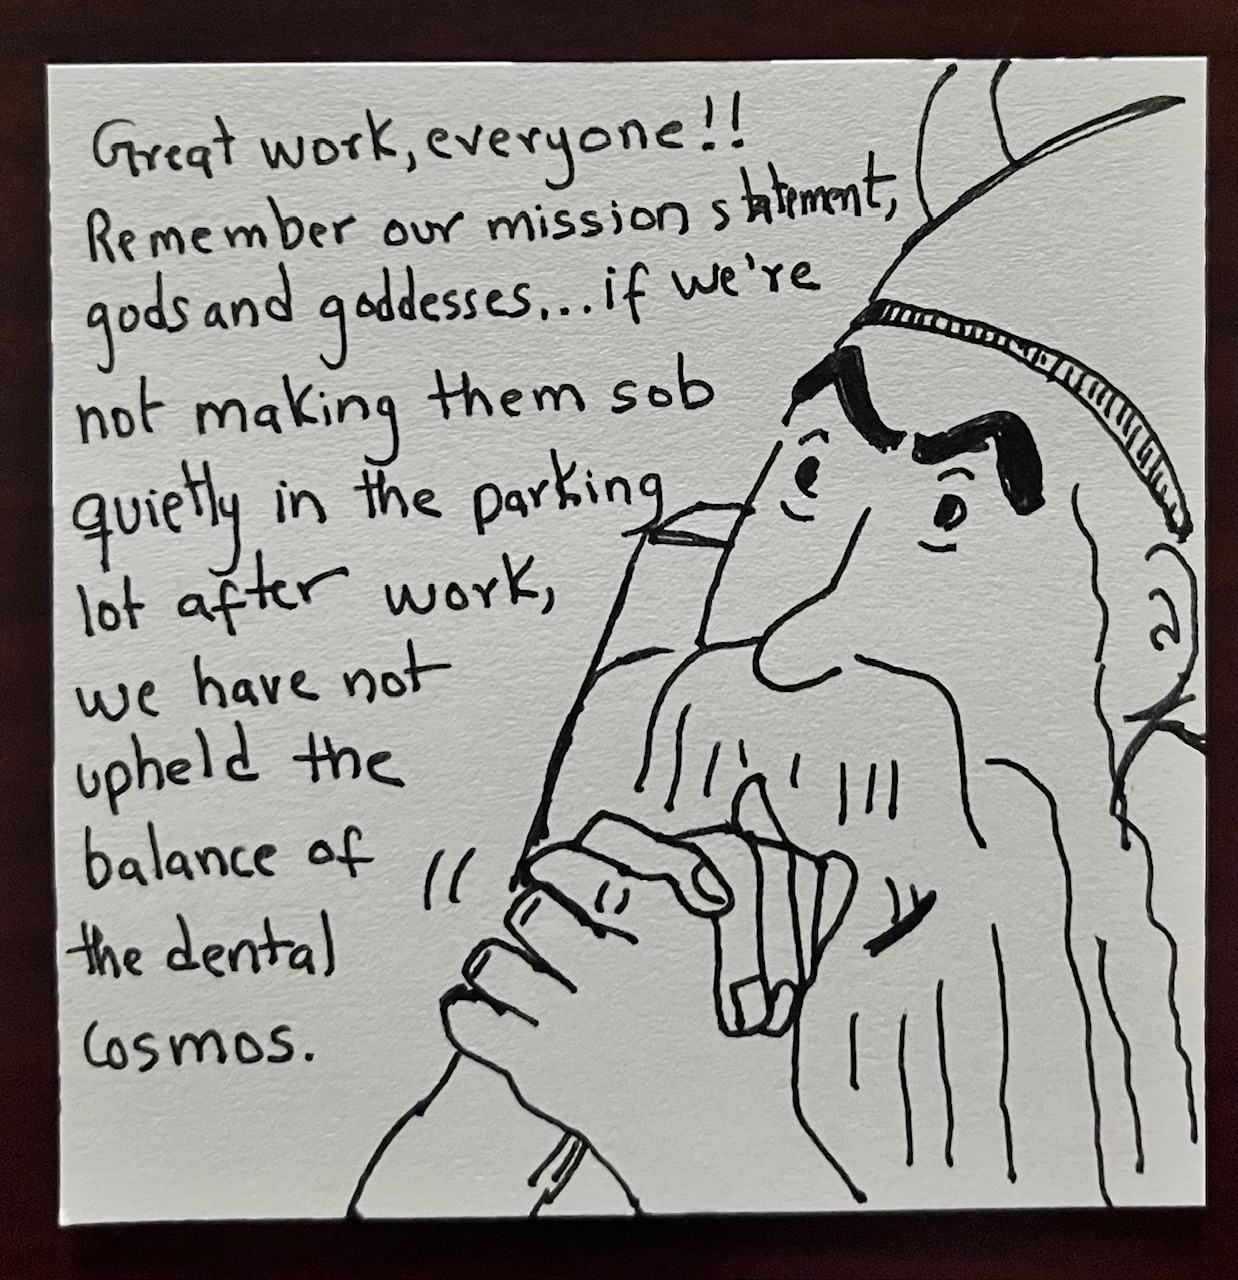 Great work, everyone!!
Remember our mission statement,
gods and goddesses...if we're
not making them sob
quietly in the parking
lot after work,
we have not
upheld the
balance of
the dental
Cosmos.